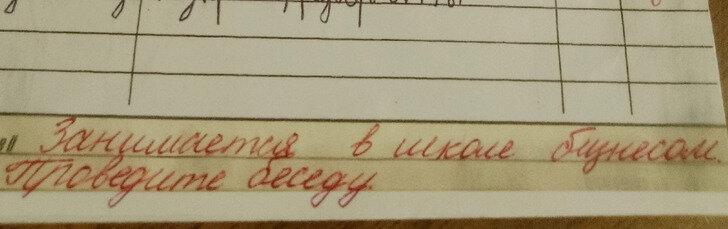 Занимается в школе бизнесом
Проведите беседу.